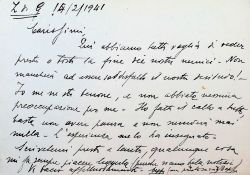 Z.d.G. 14/2/1941
Carissimi,
Qui abbiamo tutti voglia di veder
presto o tosto la fine dei nostri nemici. Non
mancherà ad esser soddisfatto il nostro desiderio!
Io me la sto bene, e non abbiate nessuna
preoccupazione per me. Ho fatto il callo a tutto,
basta non aver paura e non succederà mai
nulla. L'esperienza me lo ha insegnato.
Scrivetemi presto e tanto, qualunque cosa
mi fa sempre piacere
Vi bacio affettuosamente